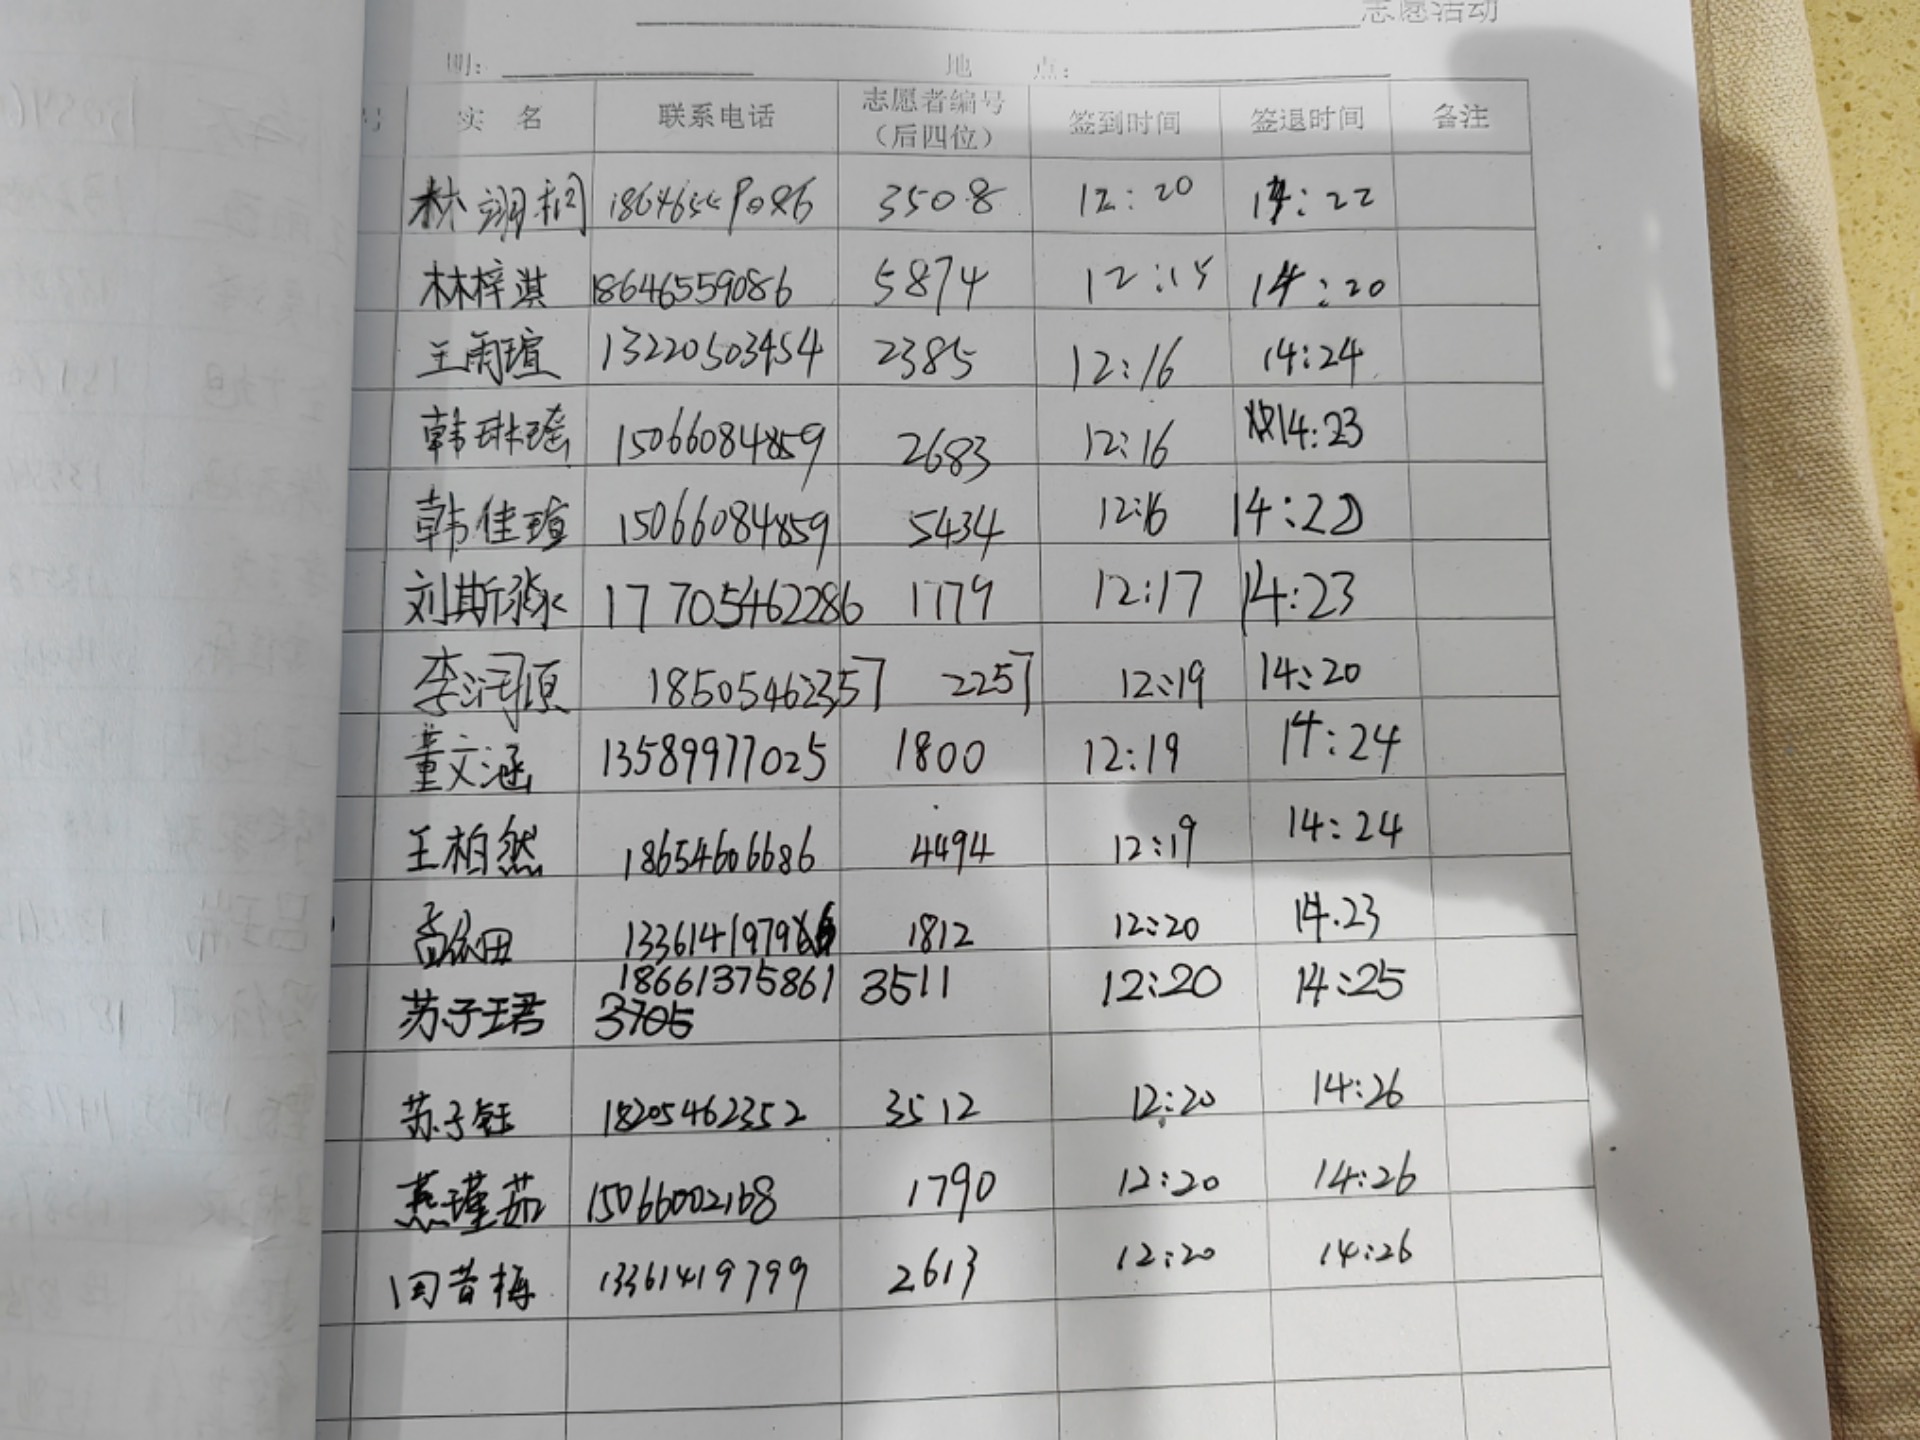 志愿活动
期: 地 点:
号 实 名 联系电话 志愿者编号（后四位） 签到时间 签退时间 备注
林翊桐 3508 12:20 14:22
林梓淇 18646559086 5874 12:15 14:20
王雨瑄 13220503454 2385 12:16 14:24
韩琳瑶 15066084859 2683 12:16 14:23
韩佳瑄 15066084859 5434 12:16 14:22
刘斯淼 17705462286 1779 12:17 14:23
李润顷 18505462357 2257 12:19 14:20
董文涵 13589977025 1800 12:19 14:24
王柏然 18654606686 4494 12:19 14:24
1812 12:20 14.23
苏子珺 18661375861 3511 12:20 14:25
3705
苏子钰 18205462352 3512 12:20 14:26
燕瑾茹 15066002168 1790 12:20 14:26
13361419799 2613 12:20 14:26